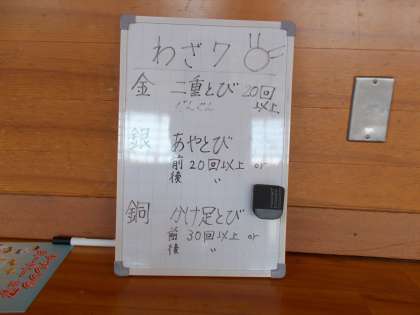 わざ7
金 二重とび 20回
以上
銀 あやとび
前 20回以上 or
後 〃
銅 かけ足とび
前 30回以上 or
後 〃